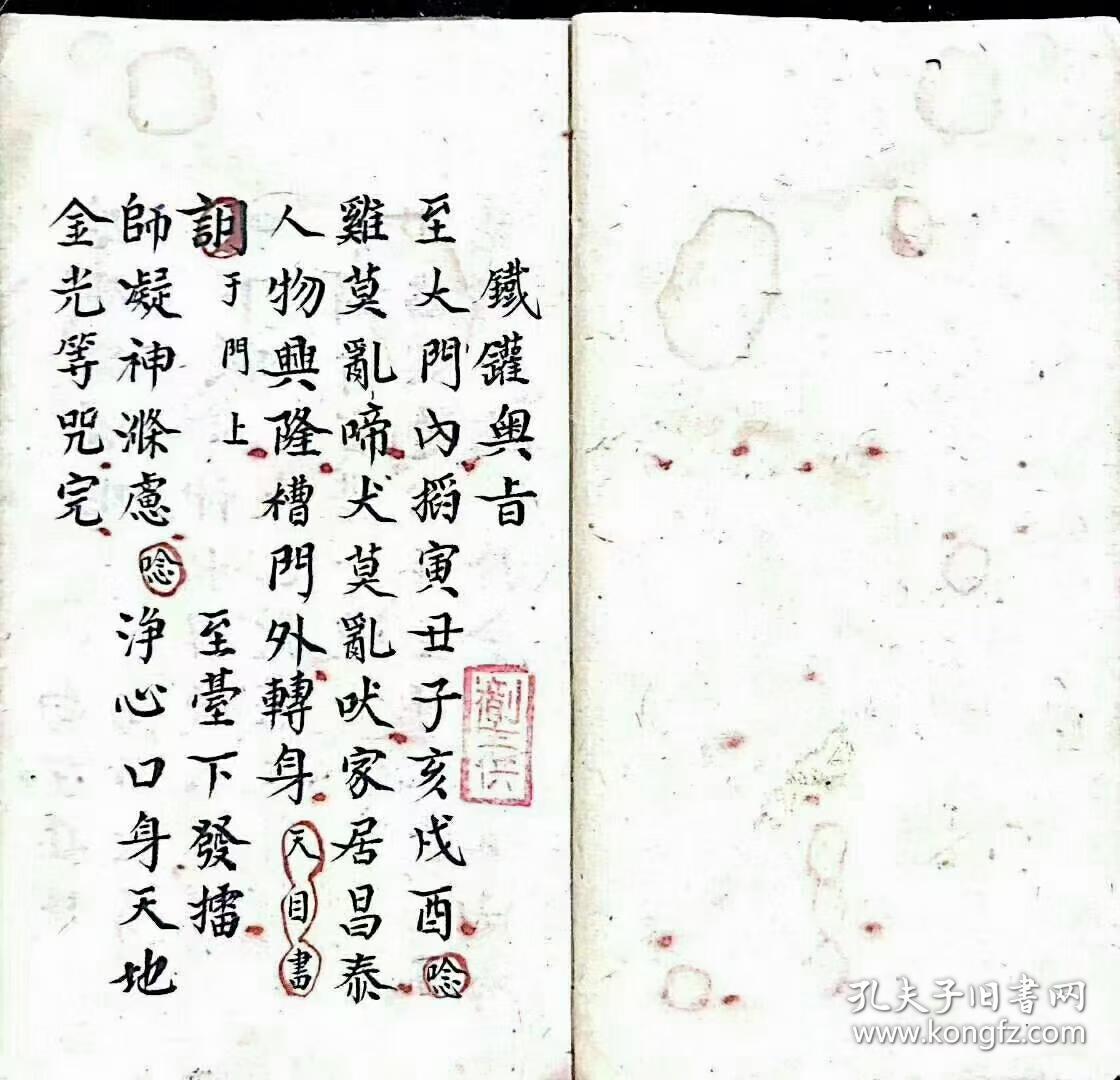 鐵鑵奥旨
至大門内搯寅丑子亥戌酉唸
雞莫亂啼犬莫亂吠家居昌泰
人物興隆槽門外轉身天目書
于門上 至臺下發擂
師凝神滌慮唸浄心口身天地
金光等咒完
孔夫子旧书网
www.kongfz.com